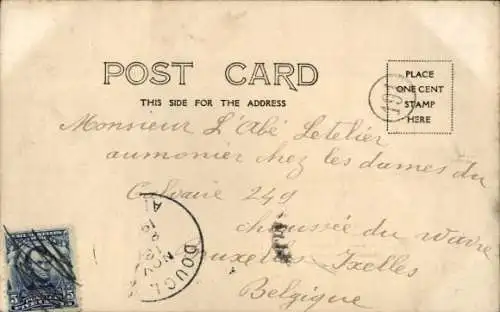 POST CARD
THIS SIDE FOR THE ADDRESS
PLACE
ONE CENT
STAMP
HERE
Monsieur L'Abé Letelier
aumonier chez les dames du
Calvaire 249
chaussée du wavre
Bruxelles Ixelles
Belgique
DOUGL
NOV
5 5